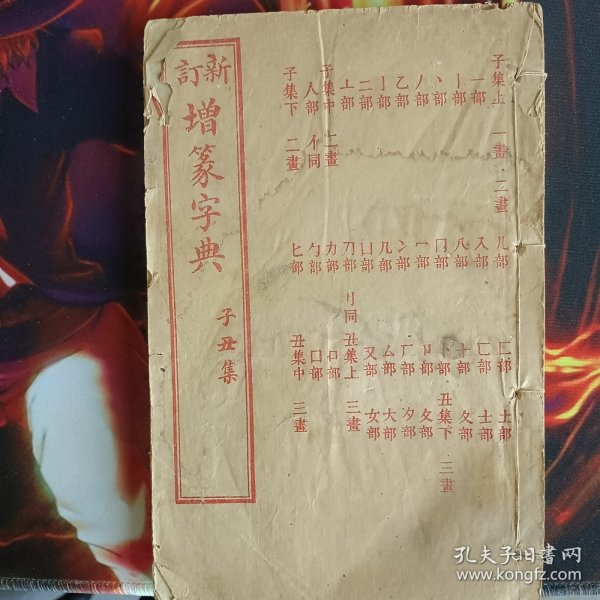 子集上 一畫.二畫
一部
丨部
丶部
丿部
乙部
亅部
二部
亠部
子集中 二畫
人部 亻同
子集下 二畫
儿部
入部
八部
冂部
冖部
冫部
几部
凵部
刀部 刂同
力部
勹部
匕部
匚部
匸部
十部
卜部
卩部
厂部
厶部
又部
丑集上 三畫
口部
囗部
丑集中 三畫
土部
士部
夂部
丑集下 三畫
夊部
夕部
大部
女部
新訂
增篆字典
子丑集
孔夫子旧書网
www.kongfz.com